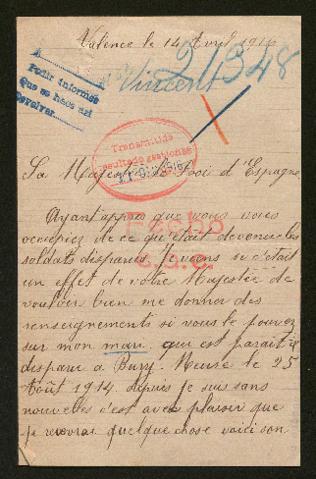 Valence le 14 Avril 1916
Vincent
21348
Pedir informes
Que se hace así
Devolver
Transmitido
resultado gestiones
Sa Majesté le Roi d'Espagne
Ayant appris que vous vous
occupiez de ce qu'était devenue les
soldats disparus. Je viens si c'était
un effet de votre Majestée de
vouloir bien me donner des
renseignements si vous le pouvez
sur mon mari qui est paraît il
disparu a Bury. Meuse le 25
Août 1914. depuis je suis sans
nouvelles c'est avec plaisir que
je recevrai quelque chose voici son